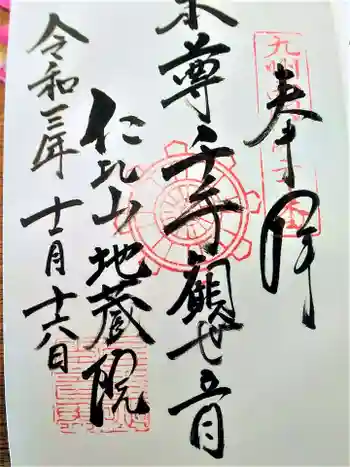 奉拝
本尊千手観世音
仁比山地蔵院
令和三年
十一月十六日
九州